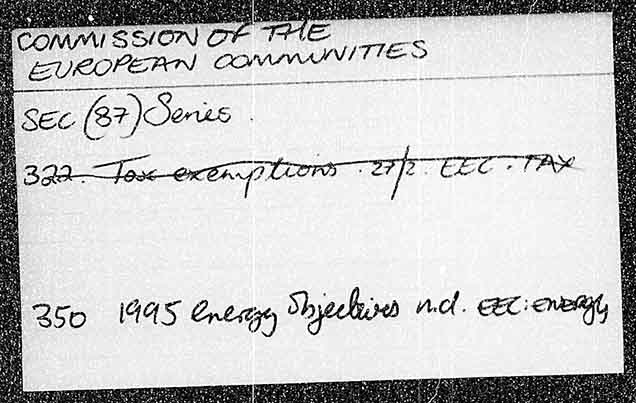 COMMISSION OF THE
EUROPEAN COMMUNITIES
SEC (87) Series.
322. Tax exemptions. 27/2. EEC. TAX
350 1995 energy objectives n.d. EEC: ENERGY